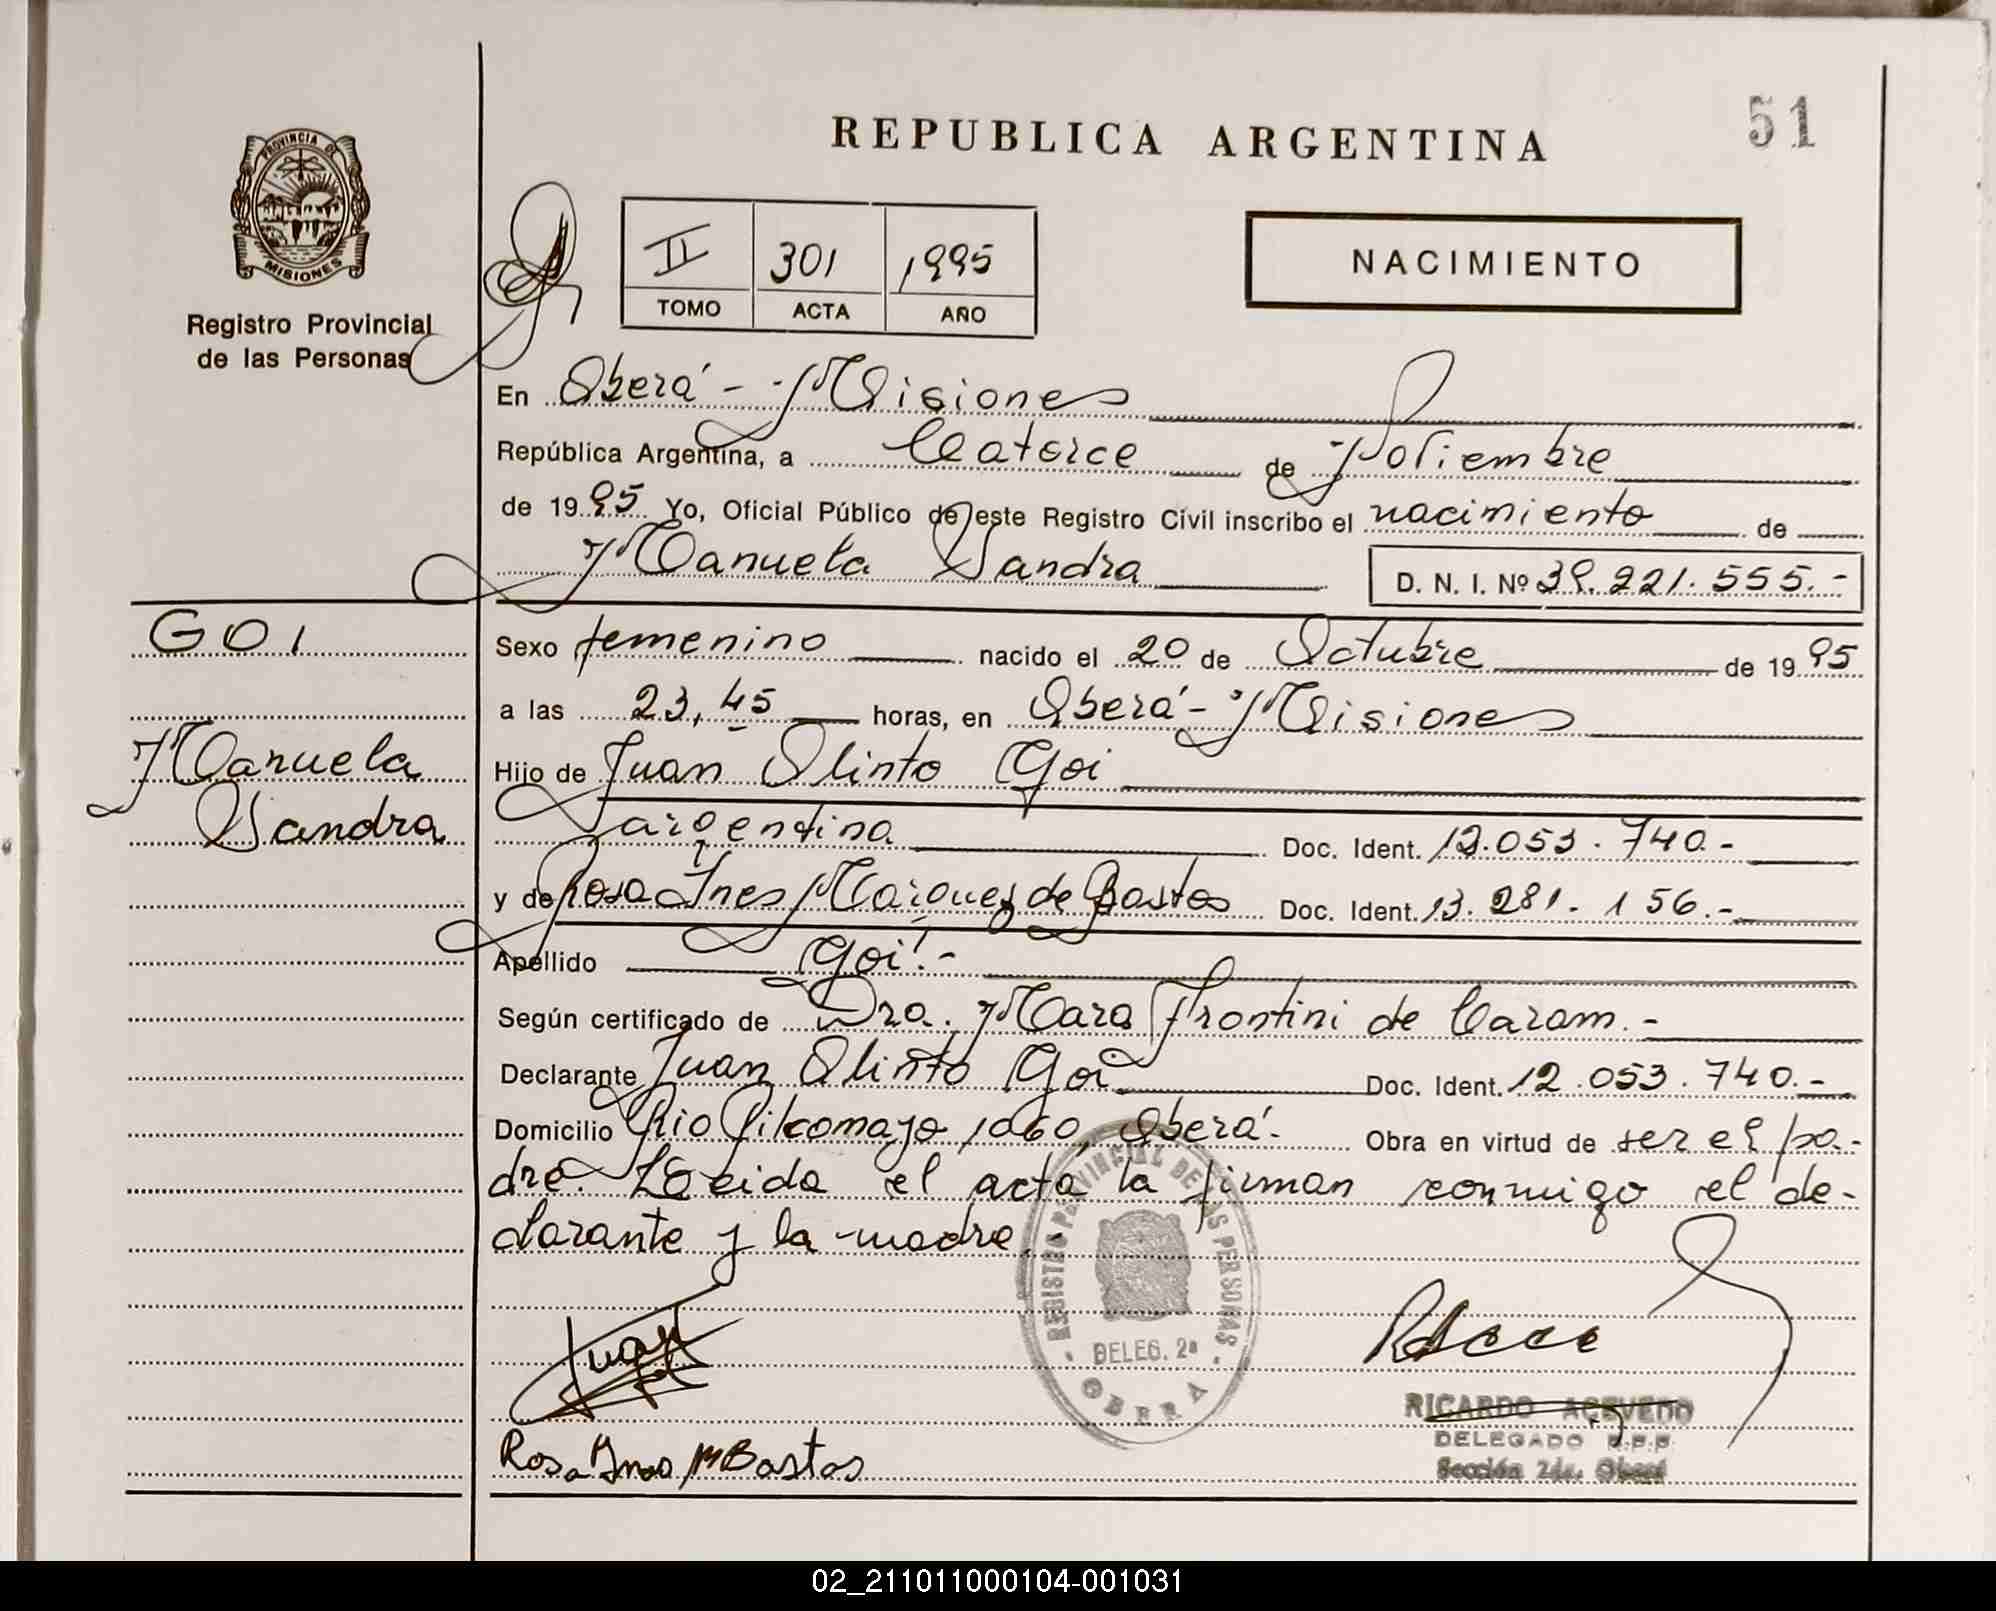 REPUBLICA ARGENTINA
51
PROVINCIA DE
MISIONES
Registro Provincial
de las Personas
II 301 1995
TOMO ACTA AÑO
NACIMIENTO
En Oberá - Misiones
República Argentina, a Catorce de Noviembre
de 1995 Yo, Oficial Público de este Registro Civil inscribo el nacimiento de
Manuela Sandra D. N. I. Nº 39.221.555.-
GOI
Manuela
Sandra
Sexo femenino nacido el 20 de Octubre de 1995
a las 23,45 horas, en Oberá - Misiones
Hijo de Juan Olinto Goi
argentina Doc. Ident. 12.053.740.-
y de Rosa Ines Marques de Bastos Doc. Ident. 13.281.156.-
Apellido Goi.-
Según certificado de Dra. Mara Frontini de Caram.-
Declarante Juan Olinto Goi Doc. Ident. 12.053.740.-
Domicilio Rio Pilcomayo 1060, Oberá.- Obra en virtud de ser el pa-
dre. Leeida el acta la firman conmigo el de-
clarante y la madre.
REGISTRO PROVINCIAL DE LAS PERSONAS
DELEG. 2ª
OBERA
Juan
Rosa Ines M Bastos
RICARDO ACEVEDO
DELEGADO R.P.P.
Sección 2da. Oberá
02_211011000104-001031